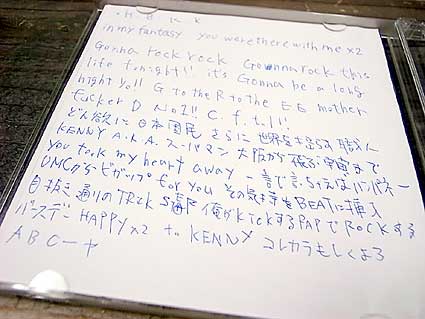 in my fantasy you were there with me x2
Gonna rock rock Gounna rock this
life tonight!! it's Gonna be a long
night yo!! G to the R to the E E mother
fucker D No2!! C. f. t. l!!
どん欲に日本国民 さらに 世界を揺らす 職人
KENNY A.k.A. スーパマン 大阪から 宇宙まで
you took my heart away 一言で言っちゃえば
UMCから for you その気持をBEATに挿入
目抜き通りの TRcK 俺がKIckするRAPでROCKする
バースデー HAPPY x2 to KENNY コレカラもしくよろ
ABCーヤ